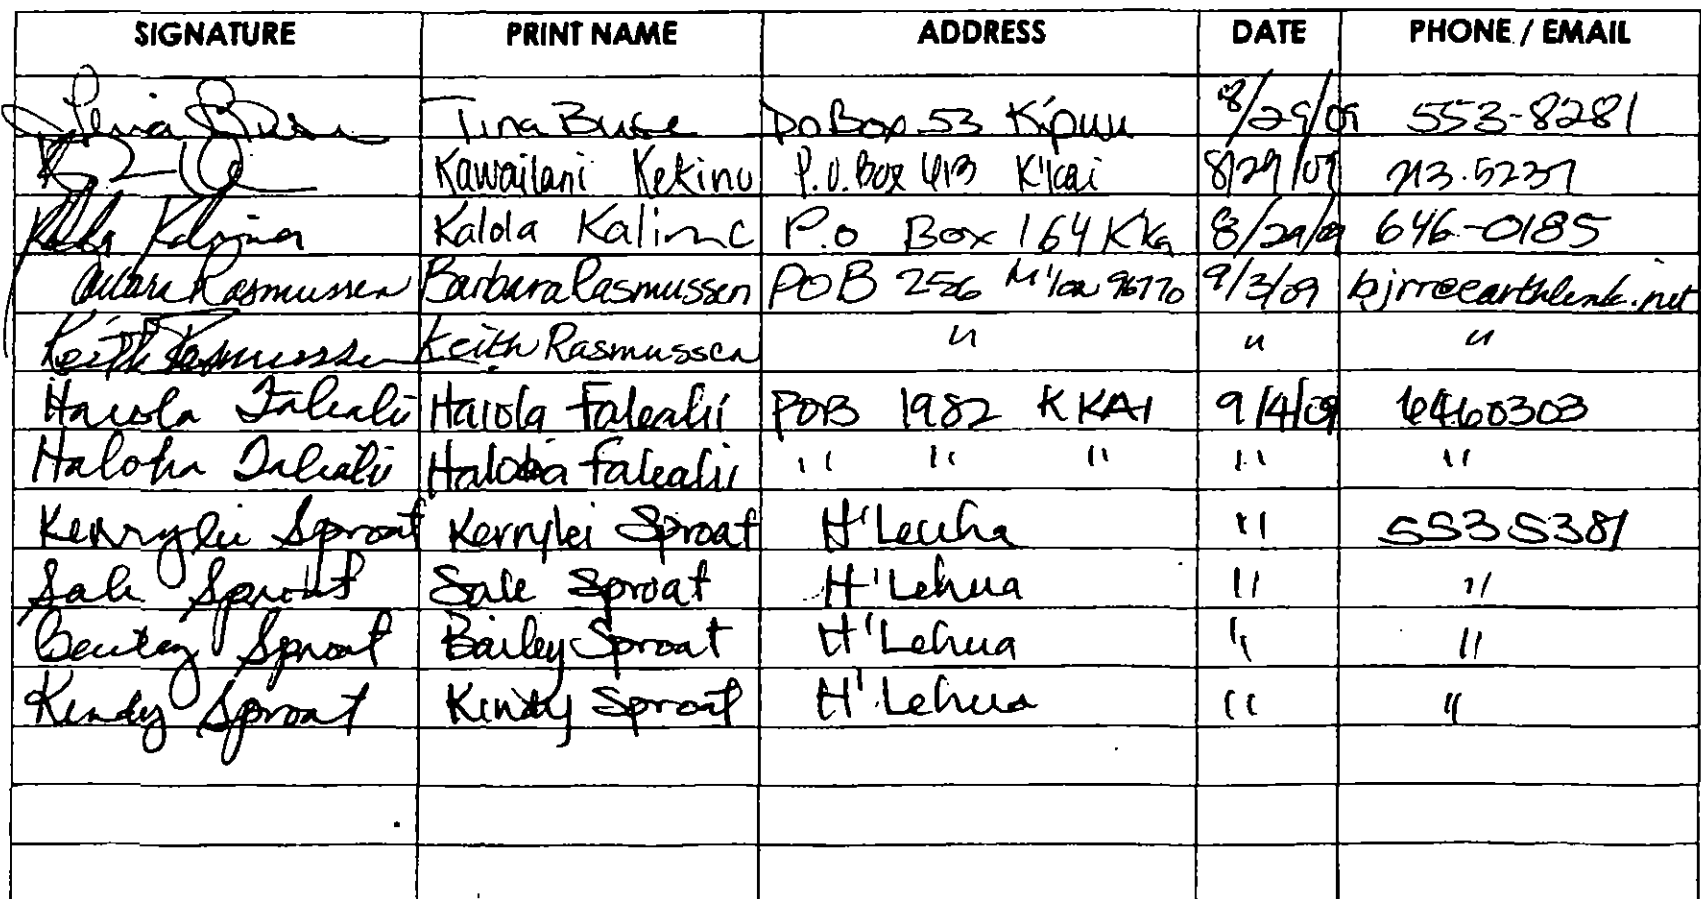 SIGNATURE PRINT NAME ADDRESS DATE PHONE / EMAIL
Tina Buse PO Box 53 K'puu 8/29/09 553-8281
Kawailani Kekinu P.O. Box 413 K'kai 8/29/09 213.5237
Kalola Kalima P.O Box 164 Kka 8/29/09 646-0185
Rasmussen Barbara Rasmussen POB 256 M'loa 96770 9/3/09 bjrr@earthlink.net
Keith Rasmussen Keith Rasmussen " " "
Harola Falealii Harola Falealii POB 1982 KKAI 9/4/09 6460303
Haloha Falealii Haloha Falealii " " " " "
Kerrylei Sproat Kerrylei Sproat H'Leuha " 553 5381
Sale Sproat Sale Sproat H'Lehua " "
Bailey Sproat Bailey Sproat H'Lehua " "
Kindy Sproat Kindy Sproat H'Lehua " "